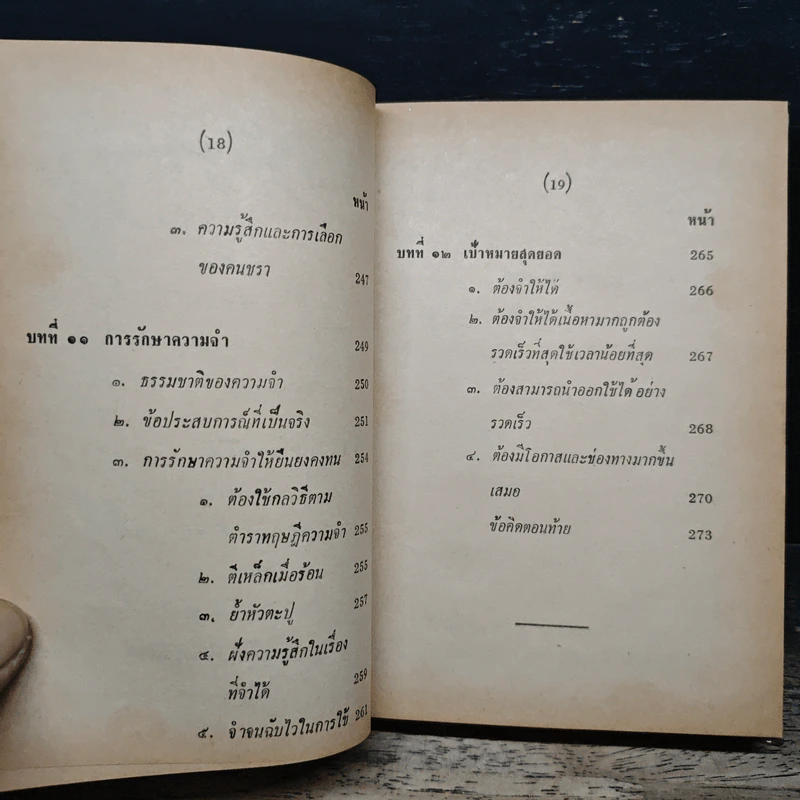 (18)
หน้า
๓. ความรู้สึกและการเลือก
ของคนชรา 247
บทที่ ๑๑ การรักษาความจำ 249
๑. ธรรมชาติของความจำ 250
๒. ข้อประสบการณ์ที่เป็นจริง 251
๓. การรักษาความจำให้ยืนยงคงทน 254
๑. ต้องใช้กลวิธีตาม
ตำราทฤษฎีความจำ 255
๒. ตีเหล็กเมื่อร้อน 255
๓. ย้ำหัวตะปู 257
๔. ฝังความรู้สึกในเรื่อง
ที่จำได้ 259
๕. จำจนฉับไวในการใช้ 261
(19)
หน้า
บทที่ ๑๒ เป้าหมายสุดยอด 265
๑. ต้องจำให้ได้ 266
๒. ต้องจำให้ได้เนื้อหามากถูกต้อง
รวดเร็วที่สุดใช้เวลาน้อยที่สุด 267
๓. ต้องสามารถนำออกใช้ได้ อย่าง
รวดเร็ว 268
๔. ต้องมีโอกาสและช่องทางมากขึ้น
เสมอ 270
ข้อคิดตอนท้าย 273